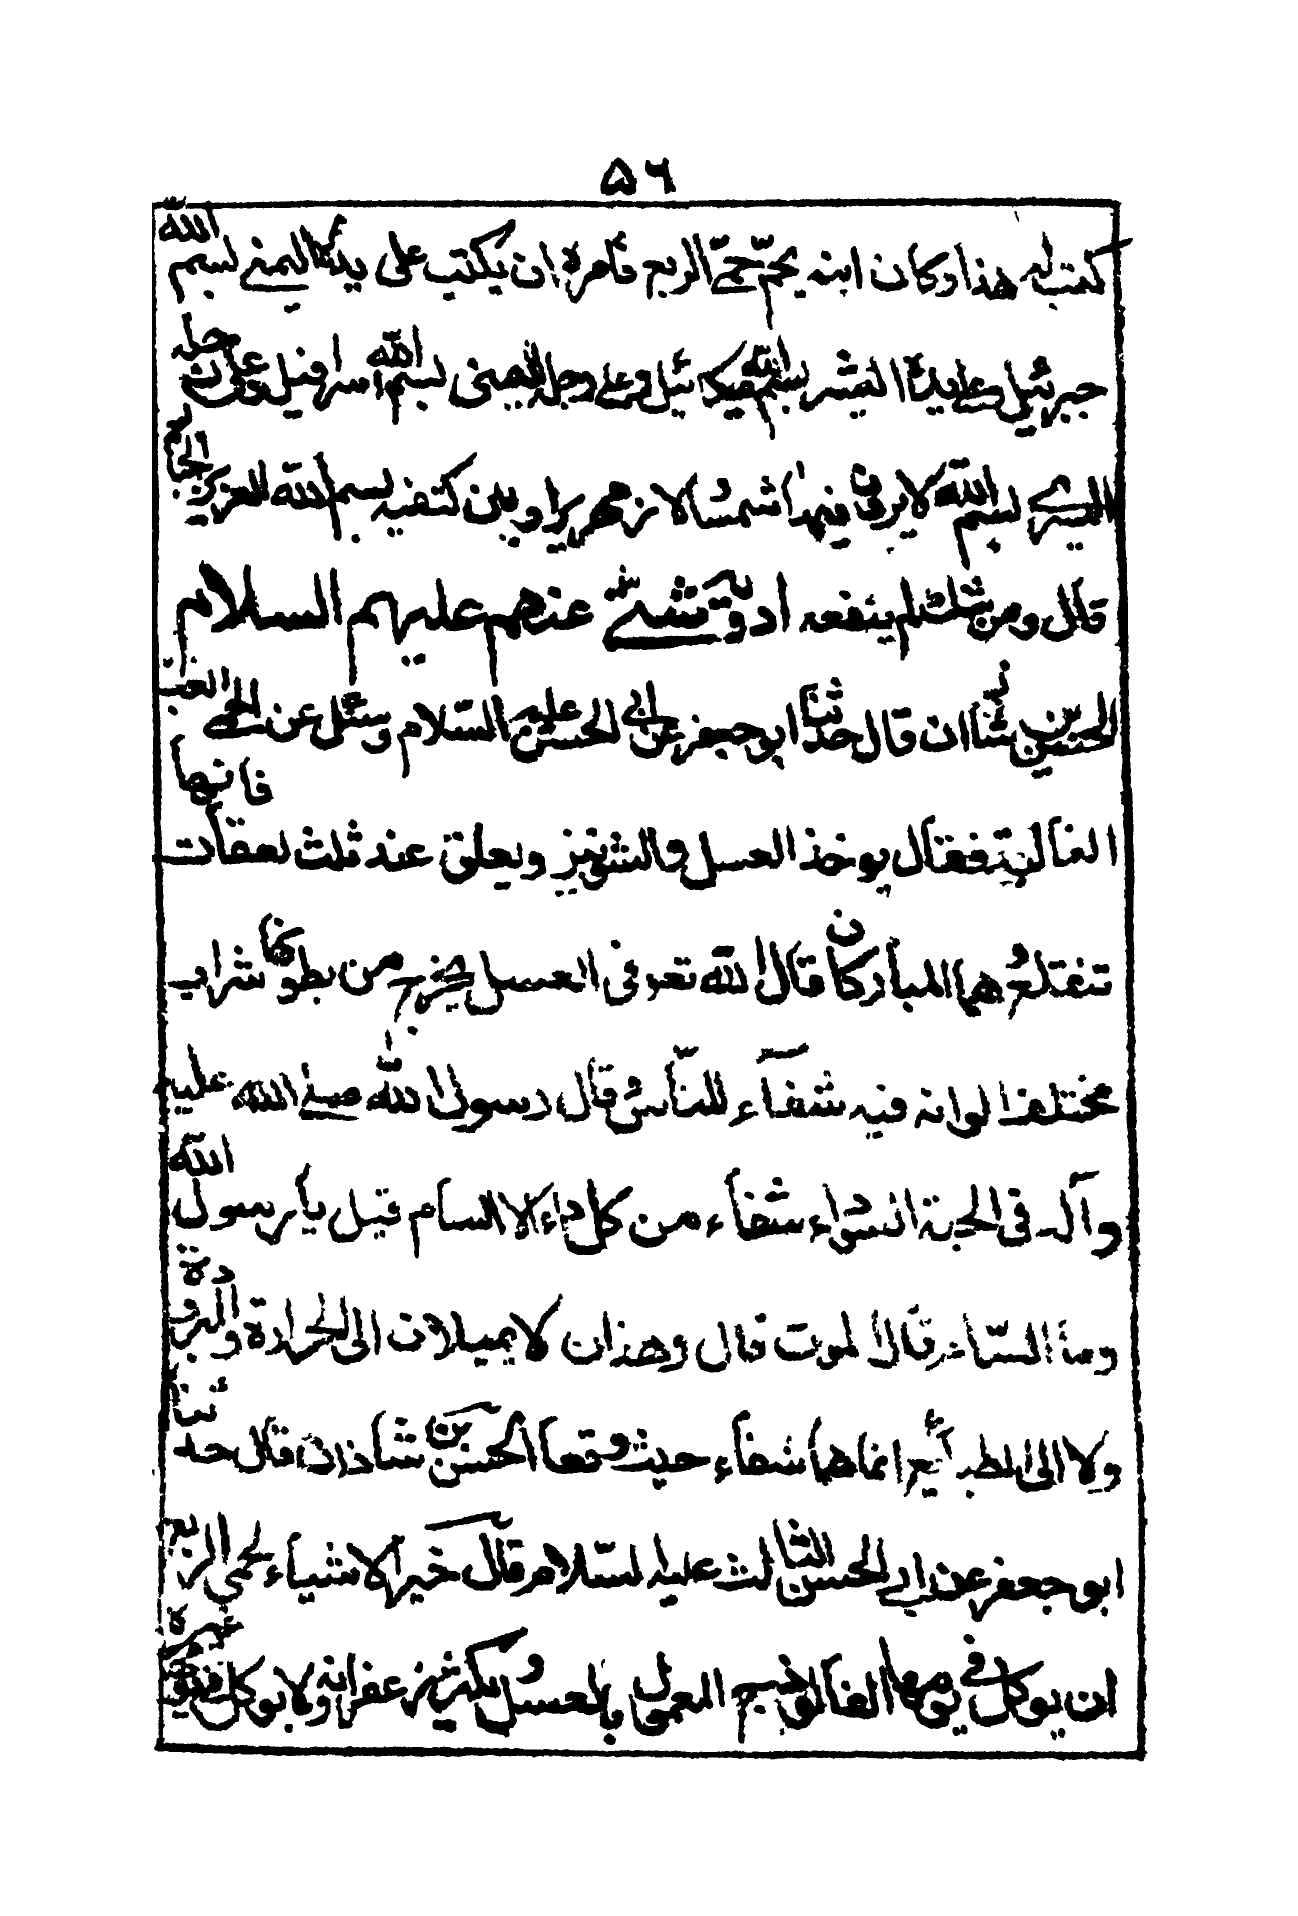 ۵۶
كتب له هذا وكان ابنه يحم حمّى الربع فامره ان يكتب على يده اليمنى بسم الله
جبرئيل وعلى يده اليسرى بسم الله ميكائيل وعلى رجله اليمنى بسم الله اسرافيل وعلى رجله
اليسرى بسم الله لا يرون فيها شمسا ولا زمهريرا وبين كتفيه بسم الله العزيز الجبار
قال ومن شك لم ينفعه ادوية شتى عنهم عليهم السلام
الحسين بن شاذان قال حدثنا ابو جعفر عن ابي الحسن عليه السلام وسئل عن الحمى الغب
الغالبة فقال يوخذ العسل والشونيز ويعلق عنه ثلث لعقات فانها
تنقلع وهما المباركان قال الله تعالى فى العسل يخرج من بطونها شراب
مختلف الوانه فيه شفآء للناس وقال رسول الله صلى الله عليه
وآله فى الحبة السوداء شفاء من كل داء الا السام قيل يا رسول الله
وما السام قال الموت قال وهذان لا يميلان الى الحرارة والبرودة
ولا الى الطبايع انما هما شفاء حيث وقعا الحسن بن شاذان قال حدثنا
ابو جعفر عن ابي الحسن الثالث عليه السلام قال خير الاشياء لحمى الربع
ان يوكل فى يومها الفالوذج المعمول بالعسل ويكثر زعفرانه ولا يوكل فى يومه غيره